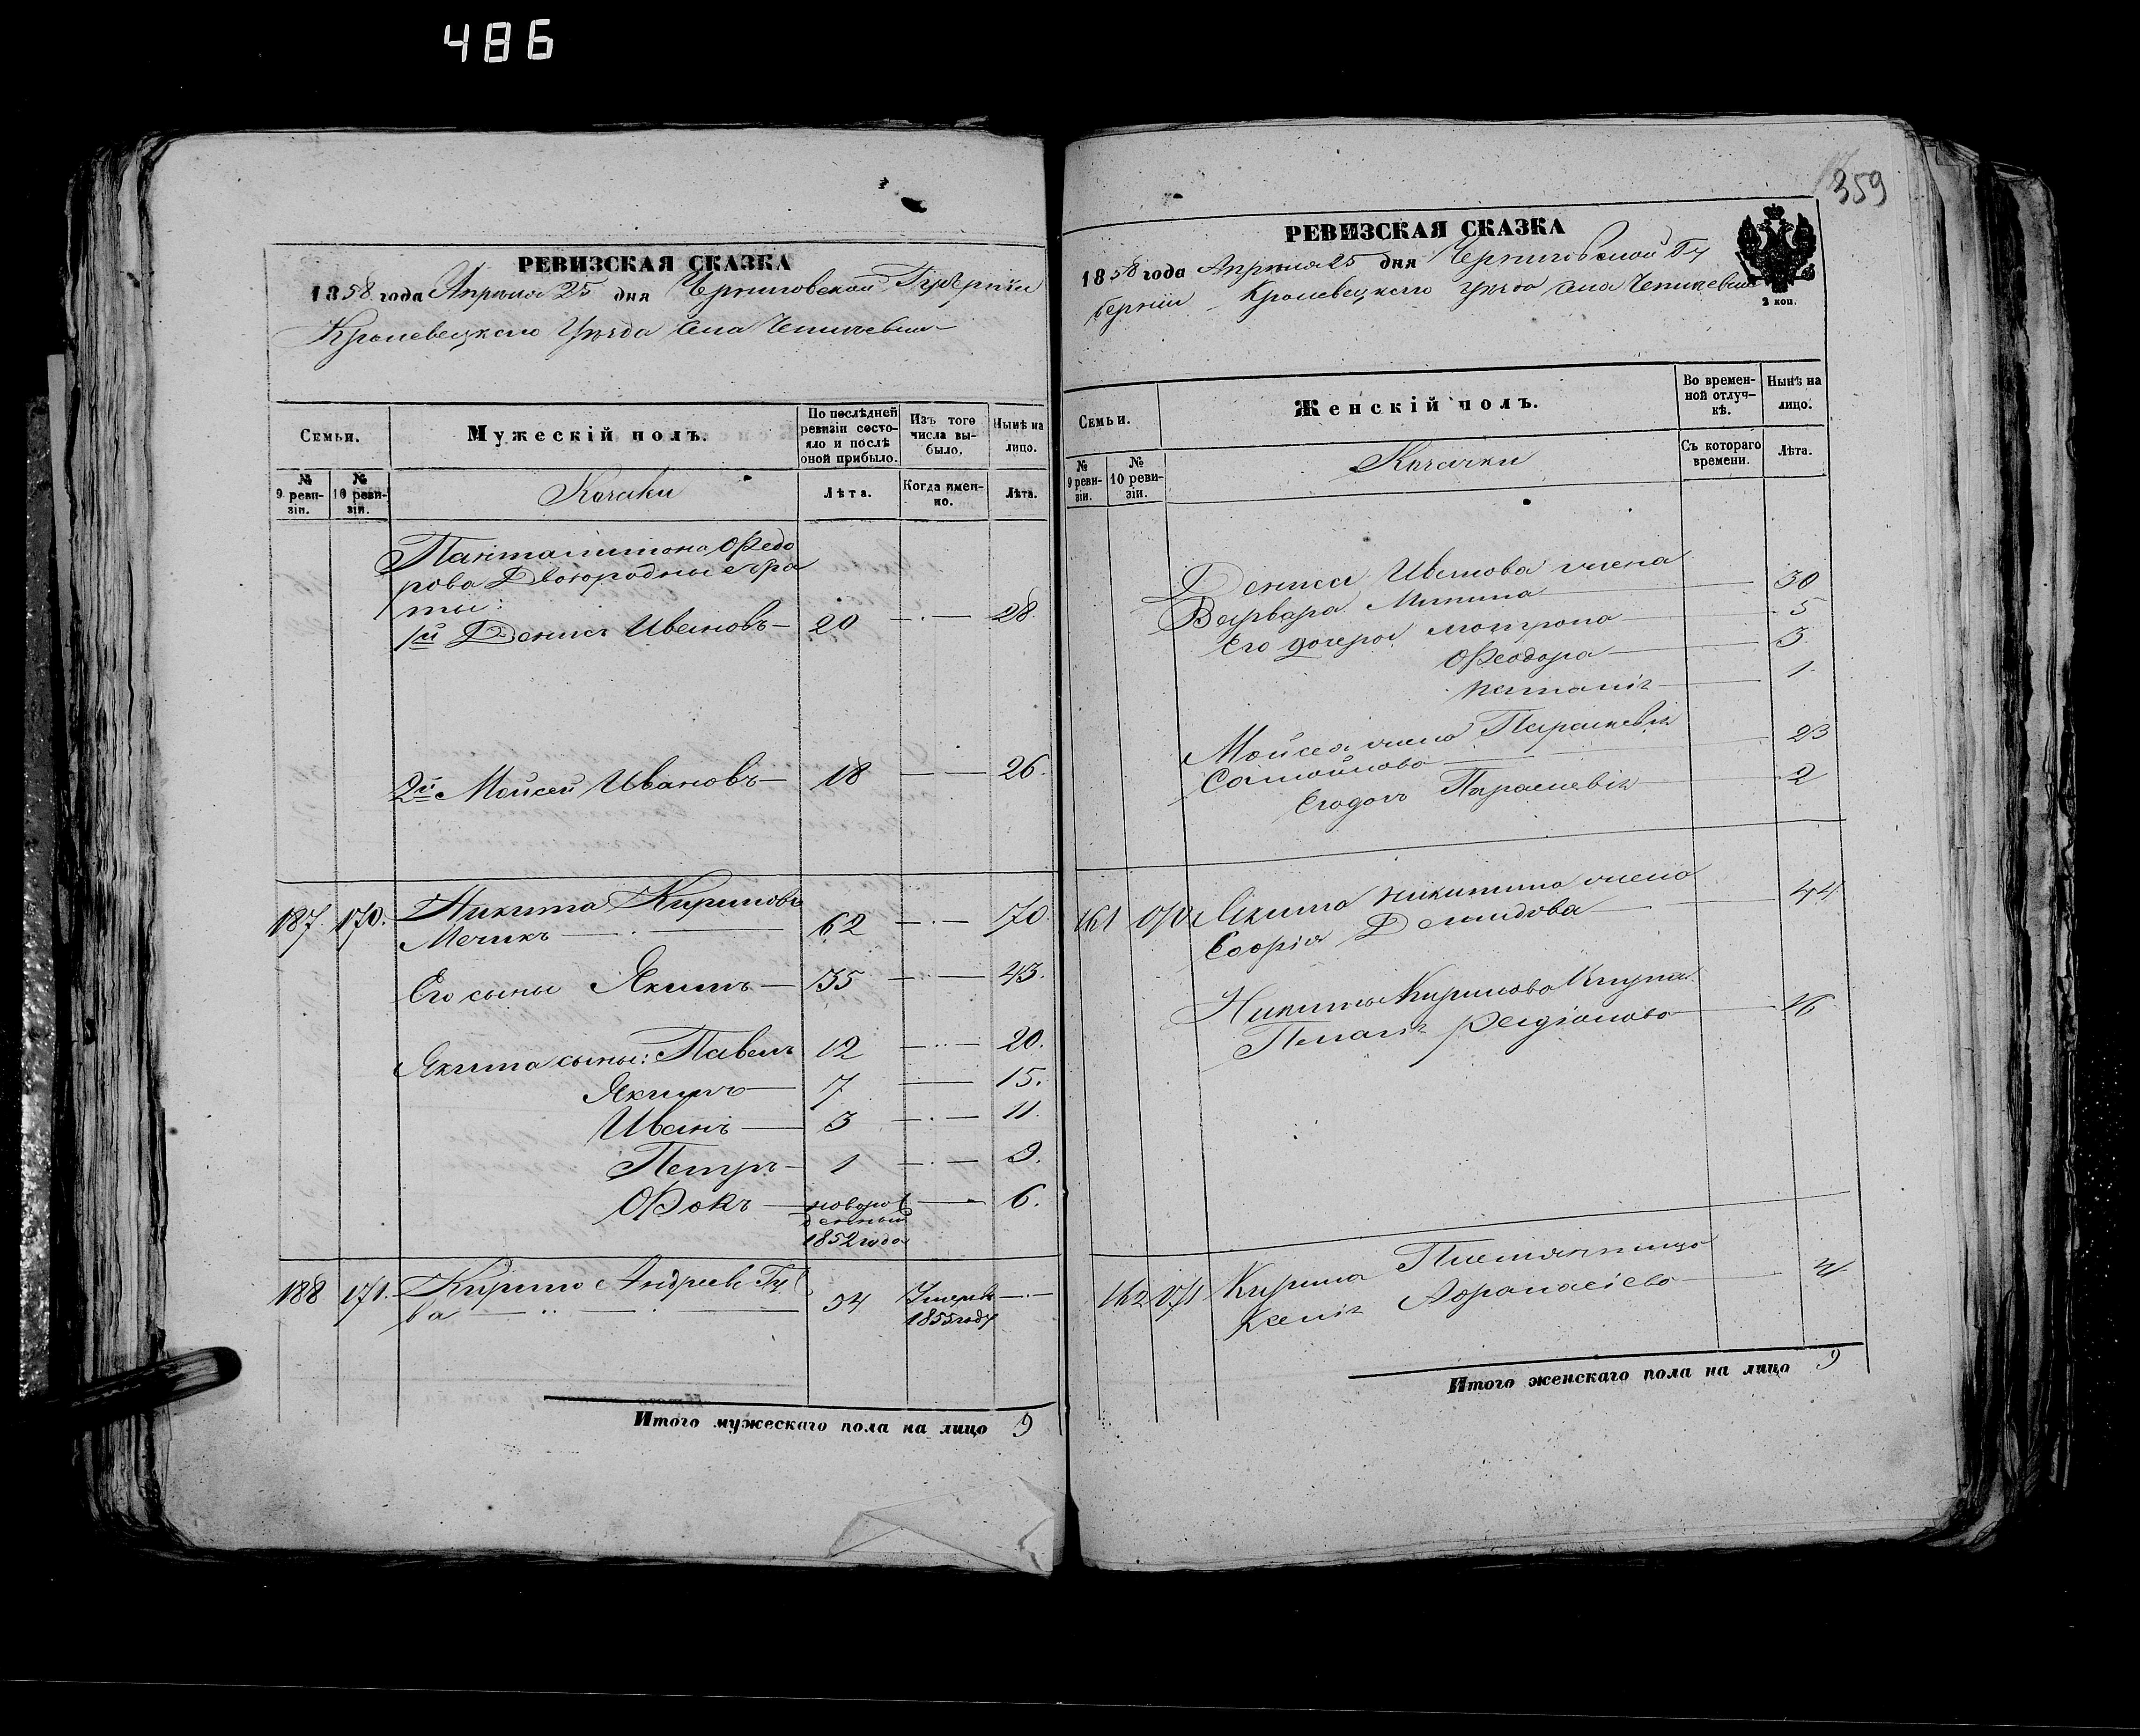 486
РЕВИЗСКАЯ СКАЗКА
1858 года Апреля 25 дня Черниговской Губернии
Кролевецкого Уезда села
Семьи.
Мужескій полъ.
По послѣдней ревизіи состояло и послѣ оной прибыло.
Изъ того числа выбыло.
Нынѣ на лицо.
№ 9 ревизіи.
№ 10 ревизіи.
Козаки
Лѣта.
Когда именно.
Лѣта.
Пантелимона Федо
рова Двоюродные бра
ты:
1й Денисъ Ивановъ — 20 — 28.
2й Мойсей Ивановъ — 18 — 26.
187. 170. Никита Кириловъ
62 — 70.
Его сыны Якимъ — 35 — 43.
Якима сыны: Павелъ 12 — 20.
Якимъ — 7 — 15.
Иванъ — 3 — 11.
Петръ — 1 — 9.
Фокъ — новорож
денный
1852 года — 6.
188 171. Кирило Андреевъ Гу
ба — 54 Умеръ
1855 году
Итого мужескаго пола на лицо 9
359
РЕВИЗСКАЯ СКАЗКА
1858 года Апреля 25 дня Черниговской Гу
берніи Кролевецкого уезда села
2 коп.
Семьи.
Женскій полъ.
Во временной отлучкѣ.
Нынѣ на лицо.
№ 9 ревизіи.
№ 10 ревизіи.
Козачки
Съ котораго времени.
Лѣта.
Дениса Иванова жена
Варвара Минина — 30
Его дочери Мотрона — 5
Феодора — 3.
Наталія — 1.
Мойсея жена Параскевія
Самойлова — 23
Его дочь Параскевія — 2
161 170 Якима Никитина жена
Софія Демидова — 44
Никиты Кирилова внука
Пелагія Родіонова — 16
162 171 Кирила Племянница
Ксенія Афанасіева — 21
Итого женскаго пола на лицо 9